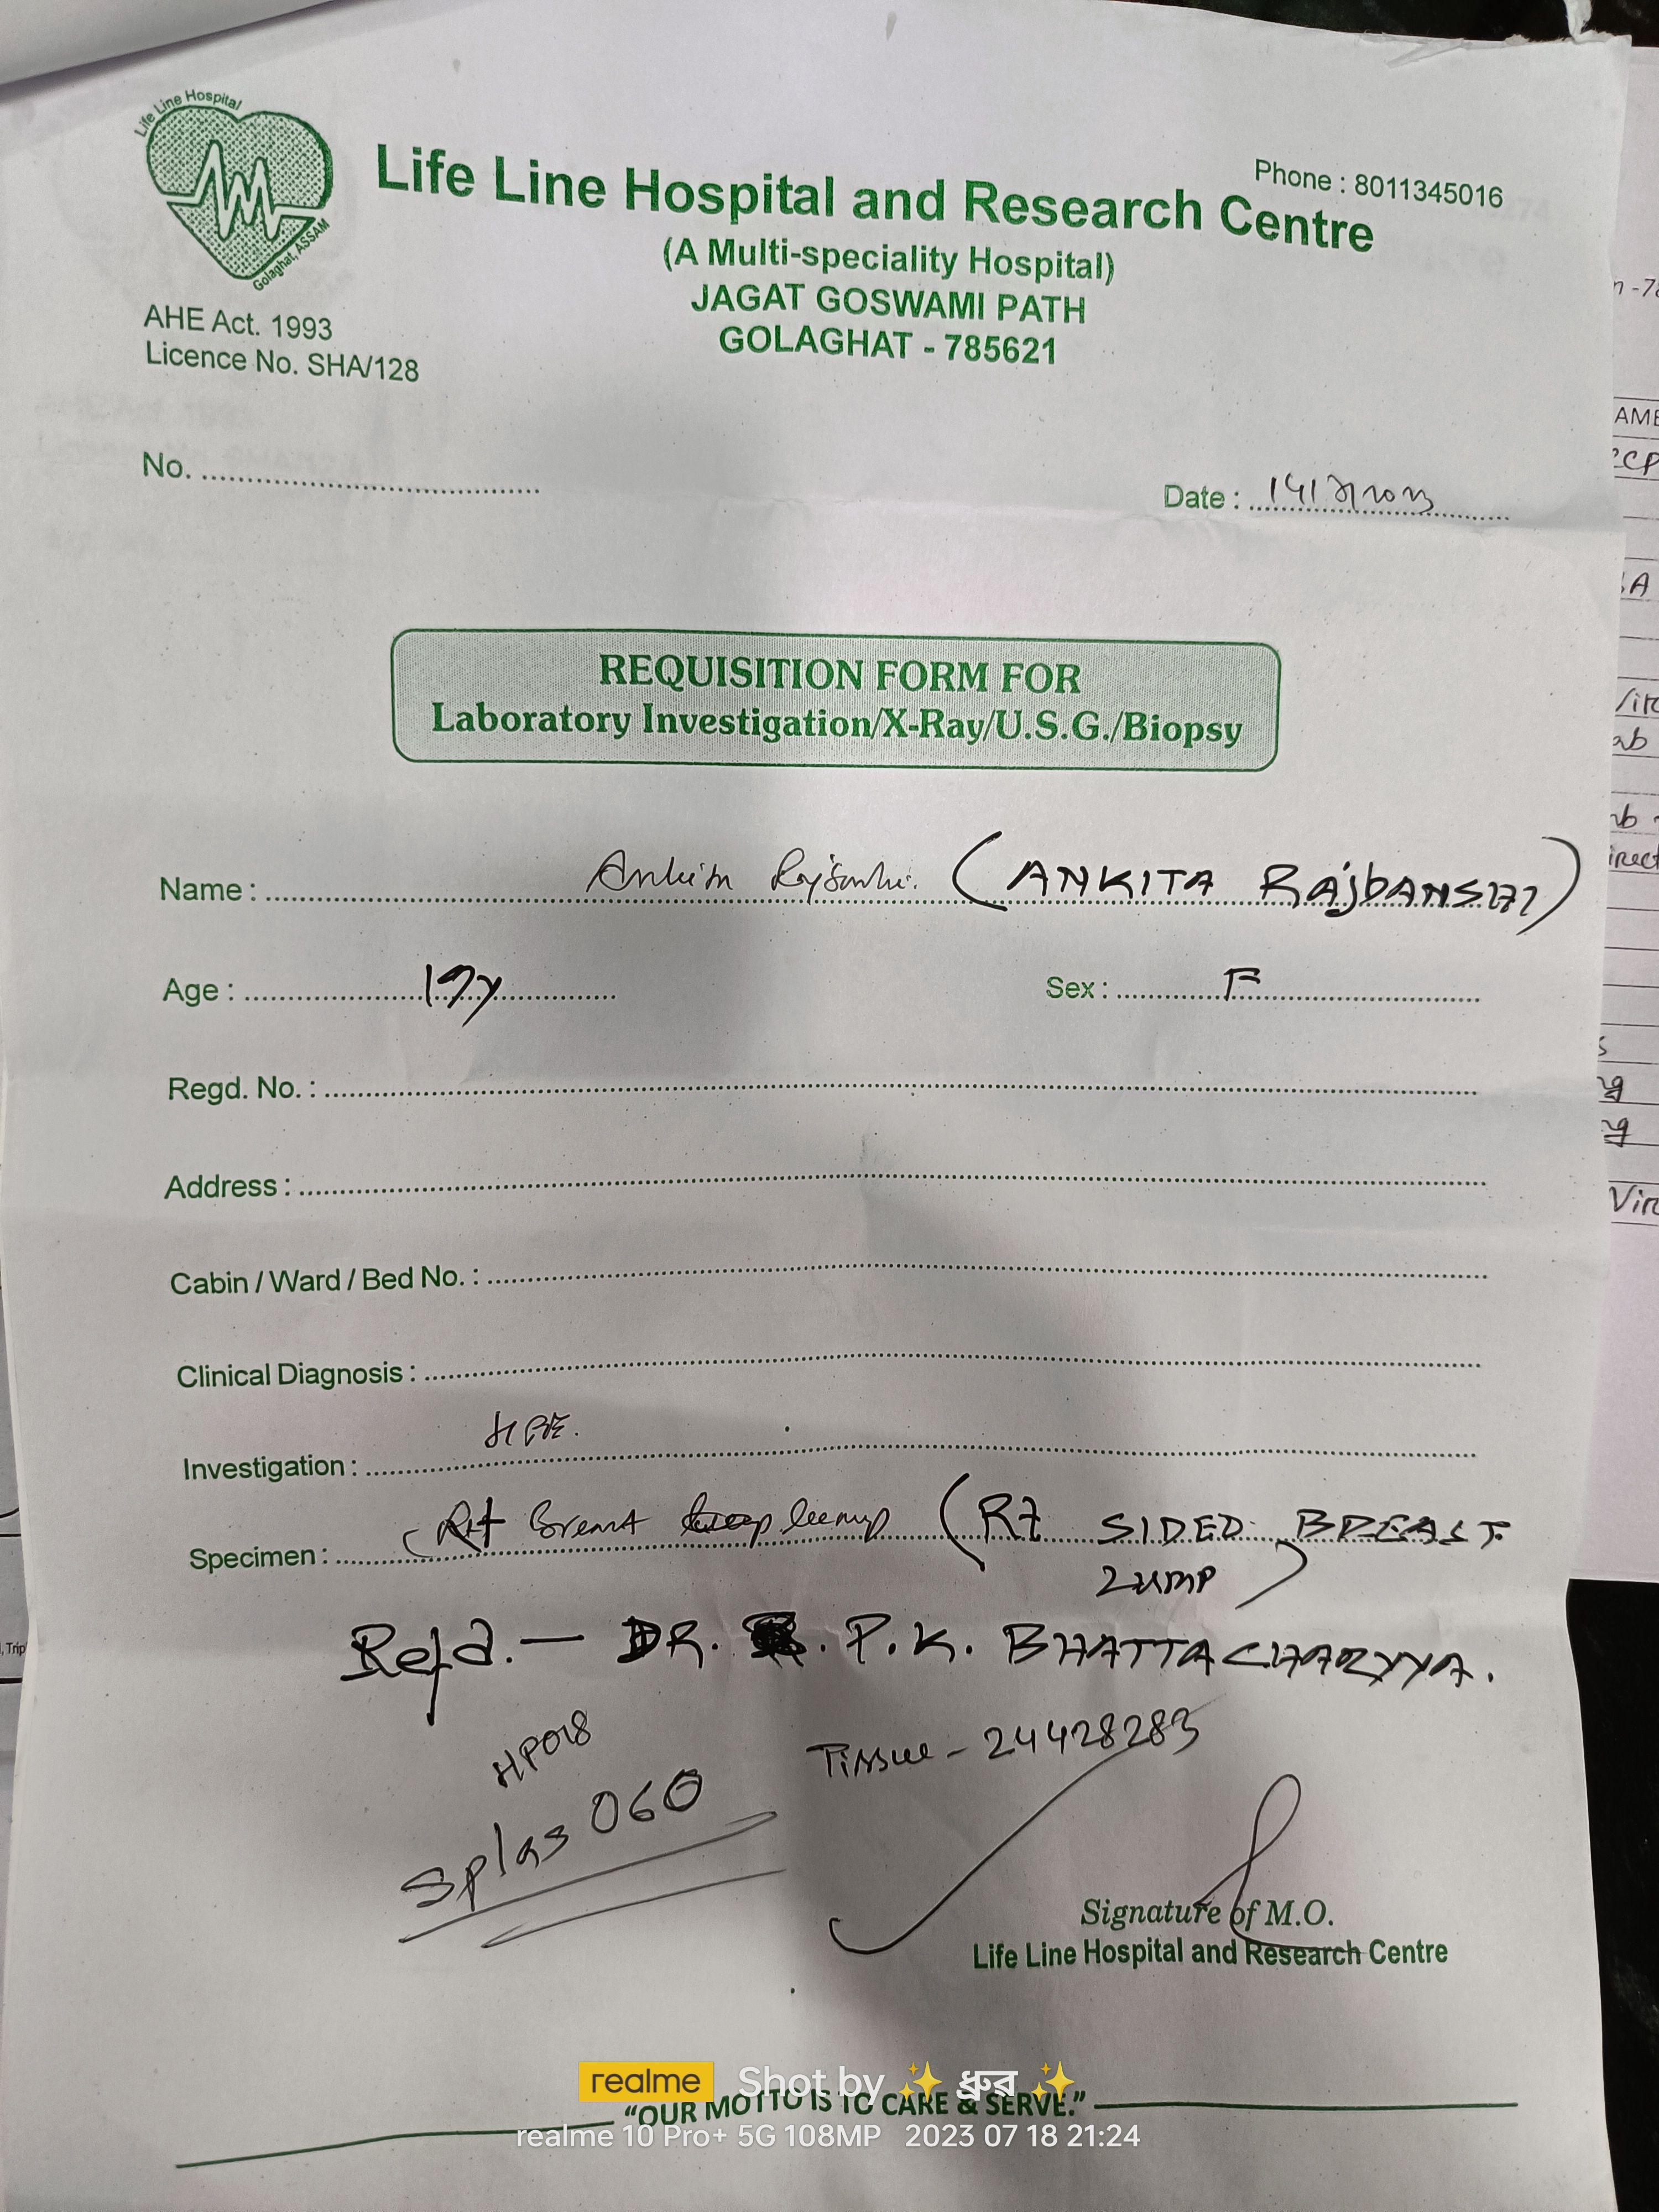 Life Line Hospital
Golaghat, ASSAM
Phone : 8011345016
Life Line Hospital and Research Centre
(A Multi-speciality Hospital)
JAGAT GOSWAMI PATH
GOLAGHAT - 785621
AHE Act. 1993
Licence No. SHA/128
No.
Date :
REQUISITION FORM FOR
Laboratory Investigation/X-Ray/U.S.G./Biopsy
Name : (ANKITA RAJBANSHI)
Age : 19y Sex : F
Regd. No. :
Address :
Cabin / Ward / Bed No. :
Clinical Diagnosis :
Investigation : HPE.
Specimen : Rt Breast lump (Rt SIDED BREAST
LUMP)
Refd. — DR. P.K. BHATTACHARYYA.
HP018
Tissue - 24428283
Splas 060
Signature of M.O.
Life Line Hospital and Research Centre
realme Shot by ✨ ধ্রুব ✨
"OUR MOTTO IS TO CARE & SERVE."
realme 10 Pro+ 5G 108MP 2023 07 18 21:24